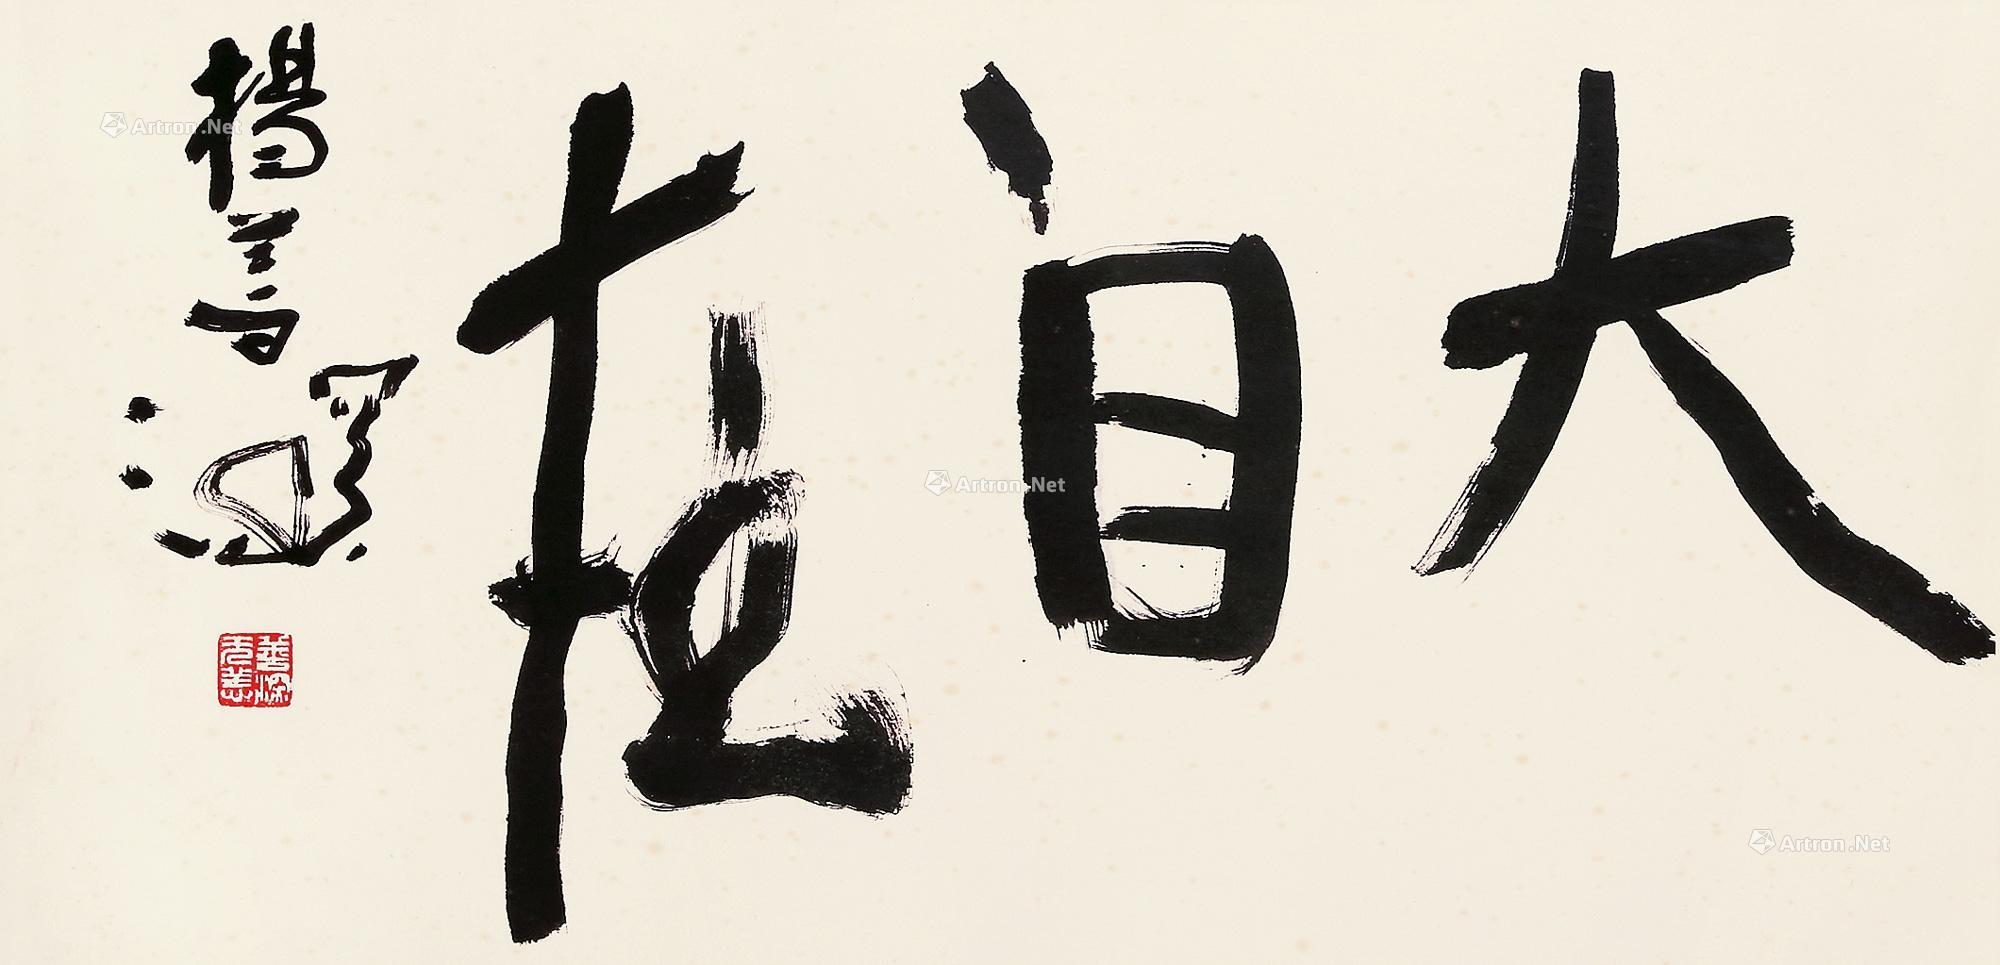 大自在
楊善深
Artron.Net
Artron.Net
Artron.Net